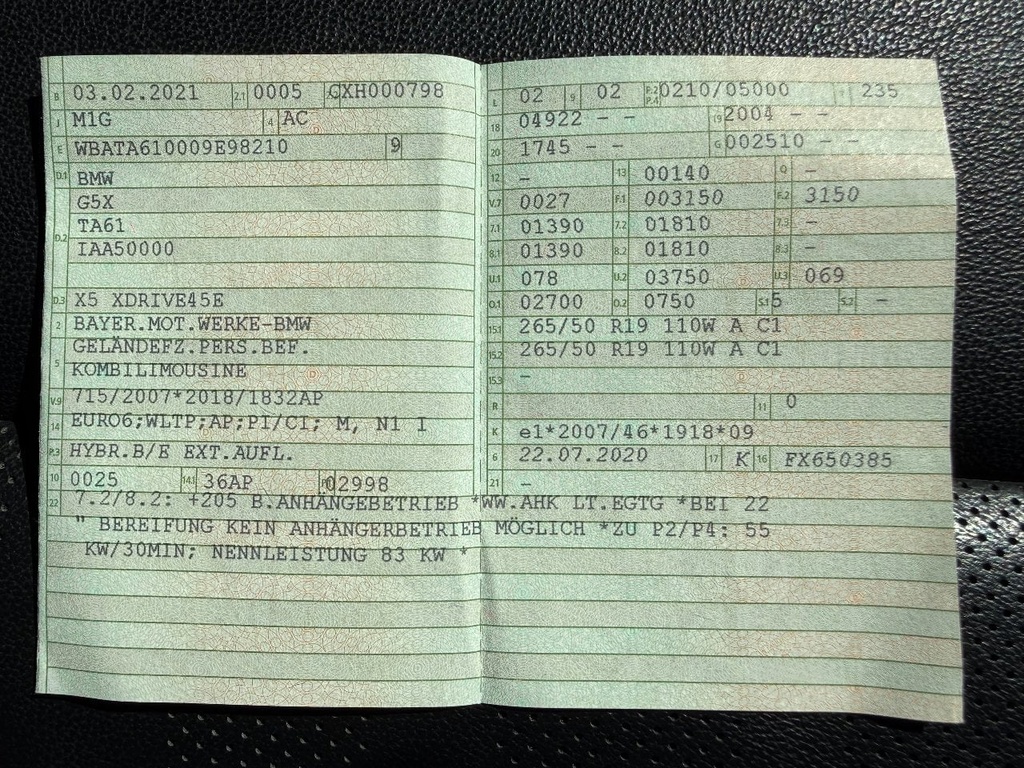 B 03.02.2021 2.1 0005 CXH000798
J M1G 4 AC
E WBATA610009E98210 9
D.1 BMW
G5X
D.2 TA61
IAA50000
D.3 X5 XDRIVE45E
2 BAYER.MOT.WERKE-BMW
GELÄNDEFZ.PERS.BEF.
5 KOMBILIMOUSINE
V.9 715/2007*2018/1832AP
14 EURO6;WLTP;AP;PI/CI; M, N1 I
P.3 HYBR.B/E EXT.AUFL.
10 0025 14.1 36AP 02998
L 02 9 02 P.2 P.4 0210/05000 235
18 04922 - - 19 2004 - -
20 1745 - - G 002510 - -
12 - 13 00140 Q -
V.7 0027 F.1 003150 F.2 3150
7.1 01390 7.2 01810 7.3 -
8.1 01390 8.2 01810 8.3 -
U.1 078 U.2 03750 U.3 069
O.1 02700 O.2 0750 S.1 5 S.2 -
15.1 265/50 R19 110W A C1
15.2 265/50 R19 110W A C1
15.3 -
R 11 0
K e1*2007/46*1918*09
6 22.07.2020 17 K 16 FX650385
21 -
22 7.2/8.2: +205 B.ANHÄNGEBETRIEB *WW.AHK LT.EGTG *BEI 22
" BEREIFUNG KEIN ANHÄNGERBETRIEB MÖGLICH *ZU P2/P4: 55
KW/30MIN; NENNLEISTUNG 83 KW *